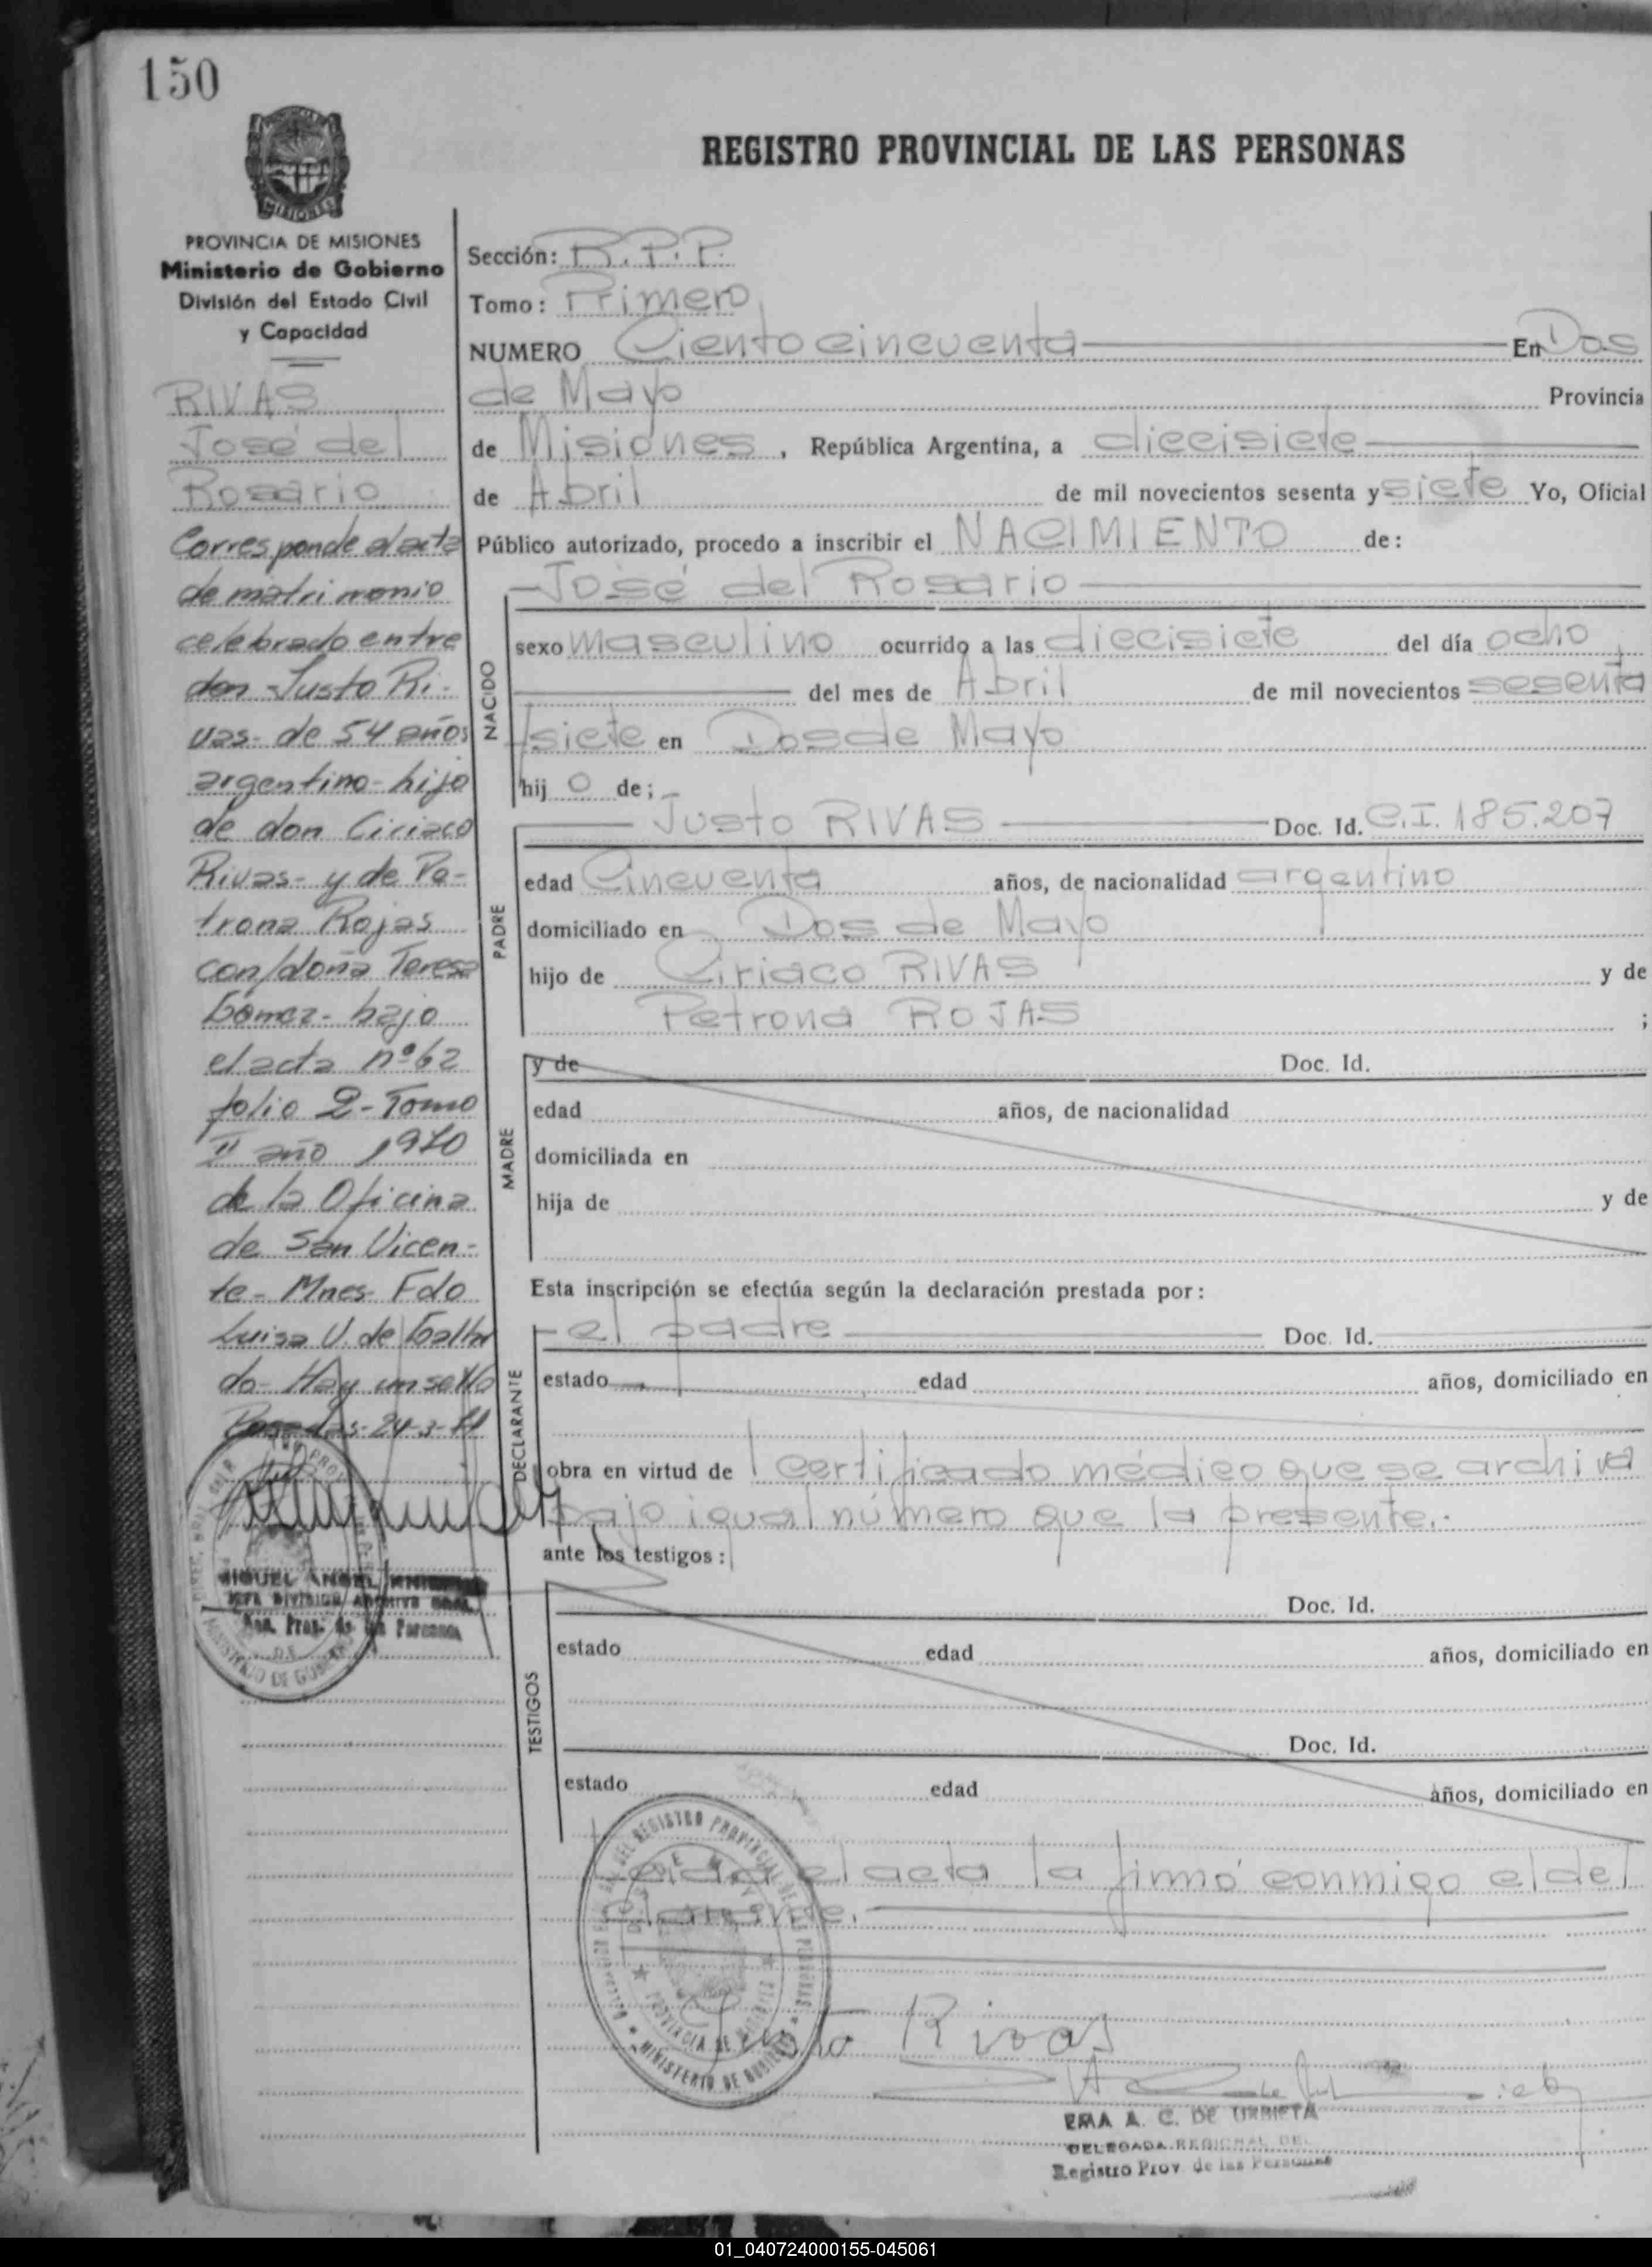 150
MISIONES
PROVINCIA DE MISIONES
Ministerio de Gobierno
División del Estado Civil
y Capacidad
RIVAS
José del
Rosario
Corresponde al acta
de matrimonio
celebrado entre
don Justo Ri-
vas- de 54 años
argentino- hijo
de don Ciriaco
Rivas- y de Pe-
trona Rojas
con/doña Teresa
Gómez- bajo
el acta nº 62
folio 2- Tomo
II año 1970
de la Oficina
de San Vicen-
te- Mnes- Fdo
Luisa V. de Galbr
do- Hay un sello
Posadas- 24-3-
MIGUEL ANGEL
JEFE DIVISION ARCHIVO GRAL.
Reg. Prov. de las Personas
MINISTERIO DE GOBIERNO
REGISTRO PROVINCIAL DE LAS PERSONAS
Sección: R.P.P.
Tomo: Primero
NUMERO Ciento cincuenta En Dos
de Mayo Provincia
de Misiones, República Argentina, a diecisiete
de Abril de mil novecientos sesenta y siete Yo, Oficial
Público autorizado, procedo a inscribir el NACIMIENTO de:
-José del Rosario
NACIDO
sexo masculino ocurrido a las diecisiete del día ocho
del mes de Abril de mil novecientos sesenta
/siete en Dos de Mayo
hij o de;
PADRE
Justo RIVAS Doc. Id. C.I. 185.207
edad Cincuenta años, de nacionalidad argentino
domiciliado en Dos de Mayo
hijo de Ciriaco RIVAS y de
Petrona ROJAS ;
MADRE
y de Doc. Id.
edad años, de nacionalidad
domiciliada en
hija de y de
Esta inscripción se efectúa según la declaración prestada por:
DECLARANTE
-el padre Doc. Id.
estado edad años, domiciliado en
obra en virtud de l certificado médico que se archiva
bajo igual número que la presente.-
ante los testigos:
TESTIGOS
Doc. Id.
estado edad años, domiciliado en
Doc. Id.
estado edad años, domiciliado en
Leída el acta la firmó conmigo el del
clarante.
DEL REGISTRO PROVINCIAL DE LAS PERSONAS
DOS DE MAYO
PROVINCIA DE MISIONES
MINISTERIO DE GOBIERNO
Justo Rivas
EMA A. C. DE URBIETA
DELEGADA REGIONAL DEL
Registro Prov. de las Personas
01_040724000155-045061